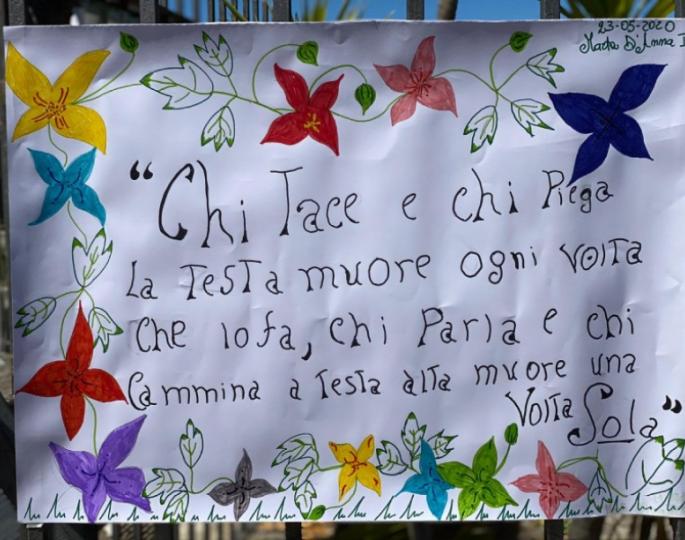 23-05-2020
Marta D'Anna I
“Chi Tace e chi Piega
La Testa muore ogni volta
che lo fa, chi Parla e chi
Cammina a Testa alta muore una
Volta Sola”